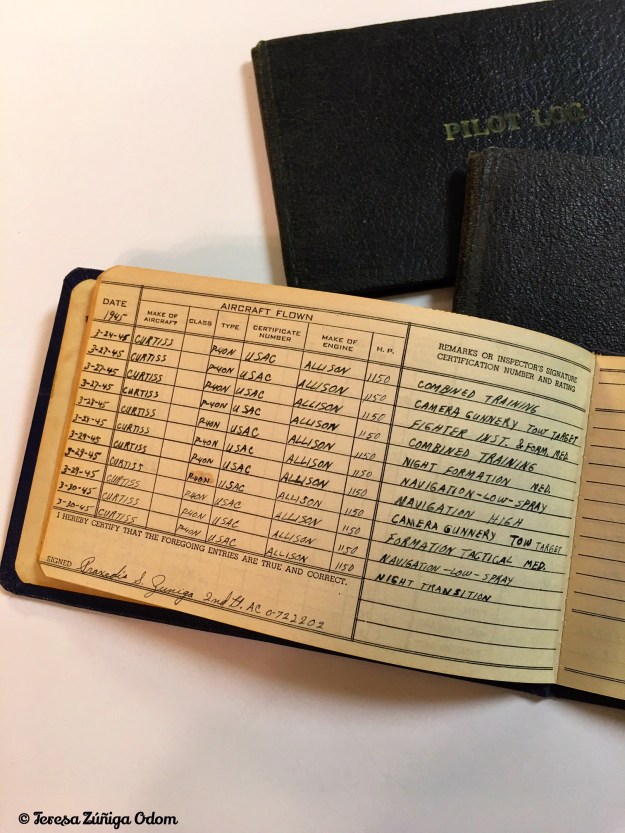 PILOT LOG
AIRCRAFT FLOWN
DATE
1945
MAKE OF AIRCRAFT
CLASS
TYPE
CERTIFICATE NUMBER
MAKE OF ENGINE
H. P.
REMARKS OR INSPECTOR'S SIGNATURE
CERTIFICATION NUMBER AND RATING
3-24-45 CURTISS P40N USAC ALLISON 1150 COMBINED TRAINING
3-27-45 CURTISS P-40N USAC ALLISON 1150 CAMERA GUNNERY TOW TARGET
3-27-45 CURTISS P-40N USAC ALLISON 1150 FIGHTER INST. & FORM. MED.
3-27-45 CURTISS P-40N USAC ALLISON 1150 COMBINED TRAINING
3-28-45 CURTISS P-40N USAC ALLISON 1150 NIGHT FORMATION MED.
CURTISS P-40N USAC ALLISON 1150 NAVIGATION-LOW-SPRAY
3-29-45 CURTISS P-40N USAC ALLISON 1150 NAVIGATION HIGH
3-29-45 CURTISS P40N USAC ALLISON 1150 CAMERA GUNNERY TOW TARGET
3-29-45 CURTISS P-40N USAC ALLISON 1150 FORMATION TACTICAL MED.
3-30-45 CURTISS P-40N USAC ALLISON 1150 NAVIGATION-LOW-SPRAY
3-30-45 CURTISS P-40N USAC ALLISON 1150 NIGHT TRANSITION
I HEREBY CERTIFY THAT THE FOREGOING ENTRIES ARE TRUE AND CORRECT.
SIGNED Praxedis S. Zuniga 2nd Lt, AC 0-722202
© Teresa Zúñiga Odom